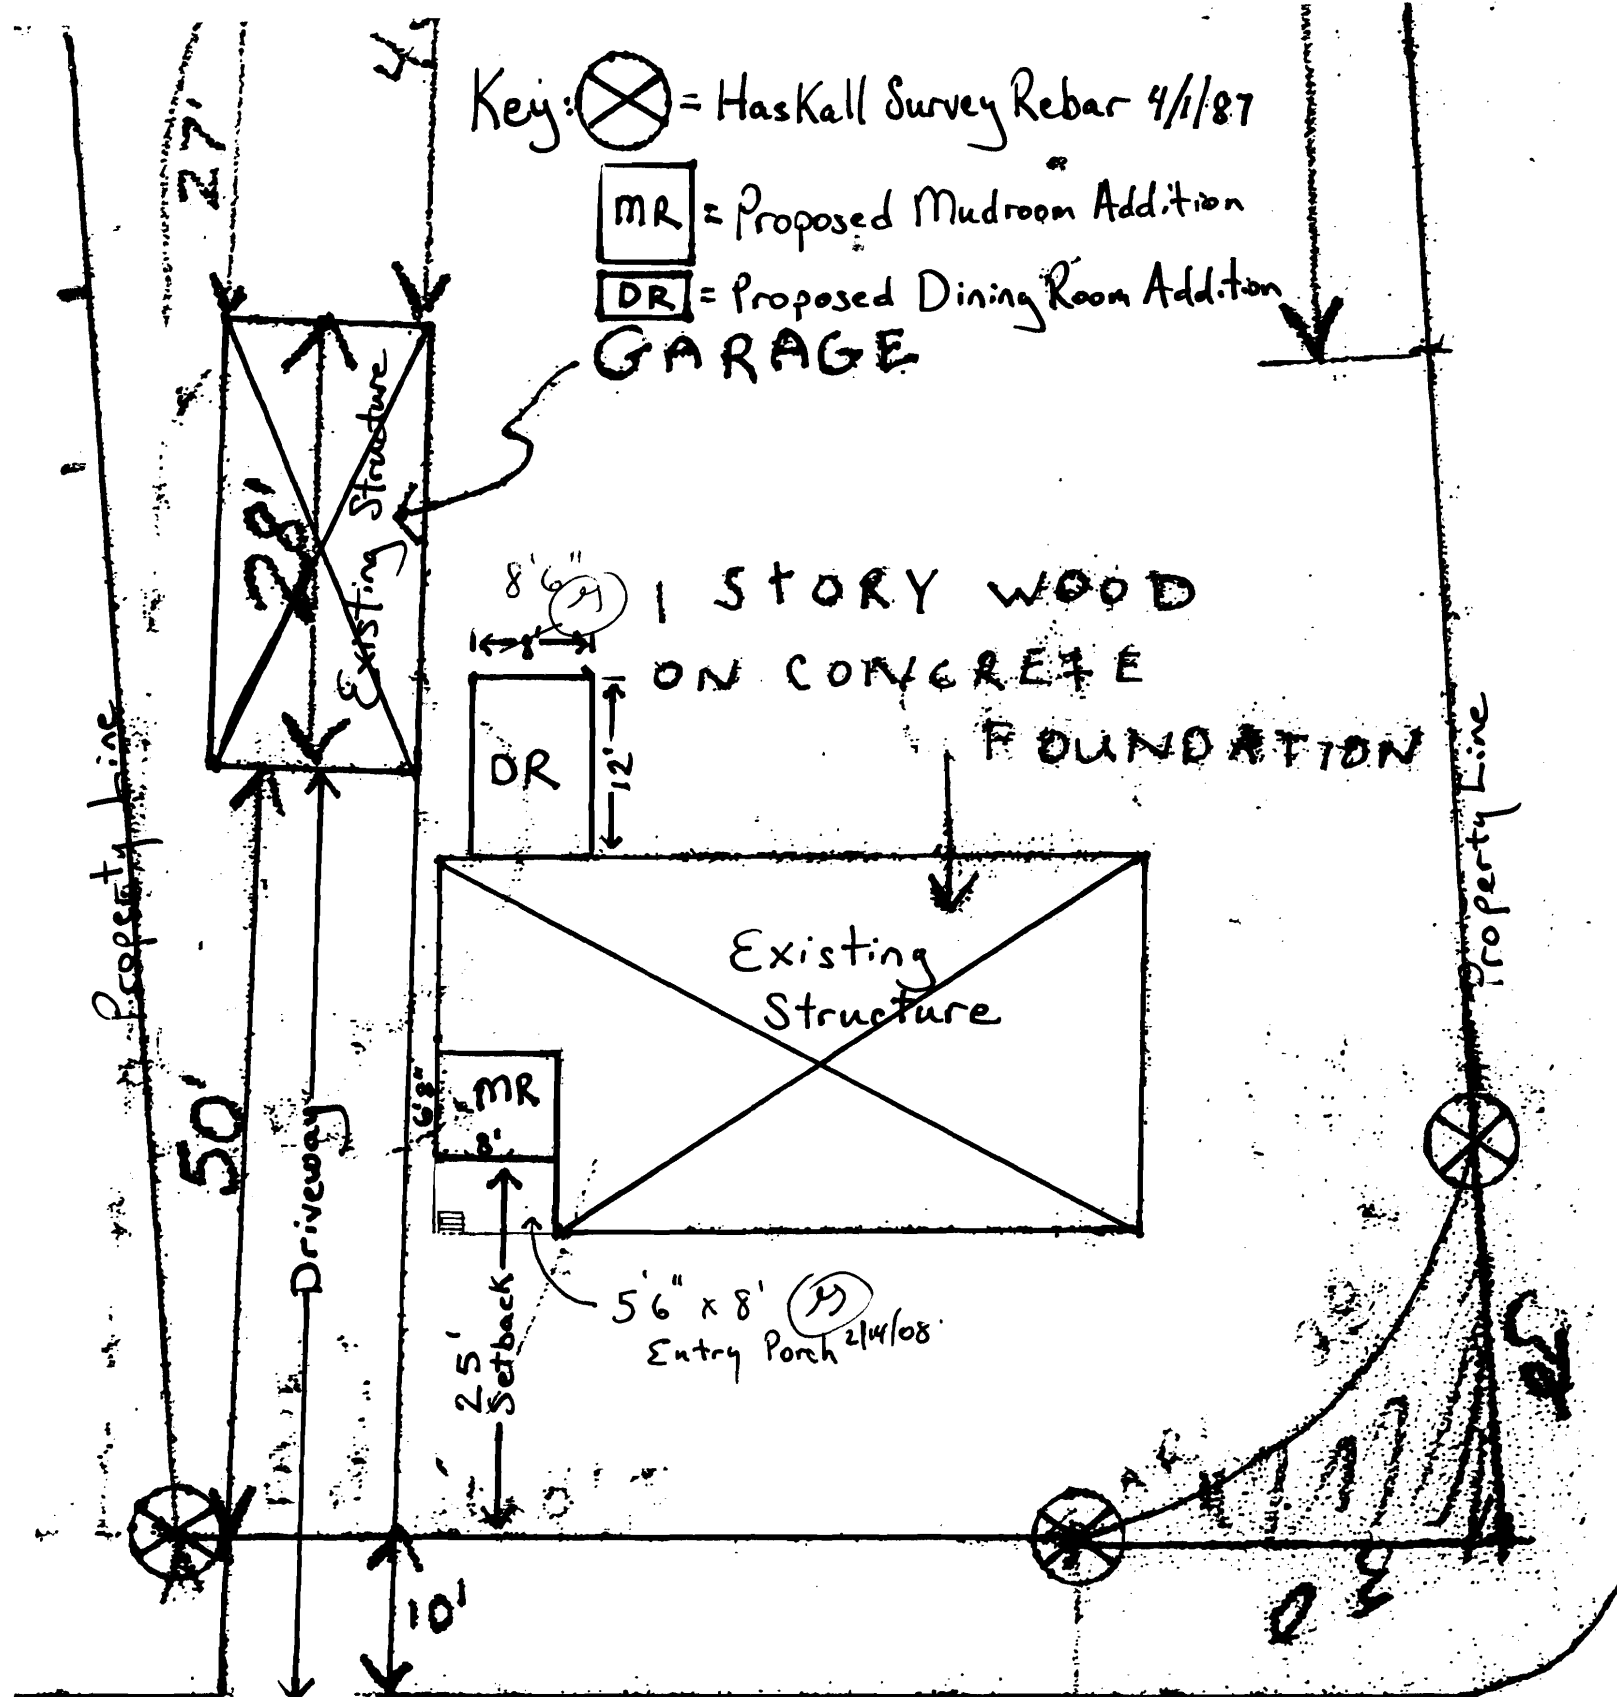 Key: = Haskall Survey Rebar 4/1/87
MR = Proposed Mudroom Addition
DR = Proposed Dining Room Addition
GARAGE
27'
4
28'
Existing Structure
8'6"
8'
1 STORY WOOD
ON CONCRETE
FOUNDATION
DR
12'
Property Line
Property Line
Existing
Structure
MR
6'8"
8'
50'
Driveway
25'
Setback
5'6" x 8'
Entry Porch 2/14/08
10'